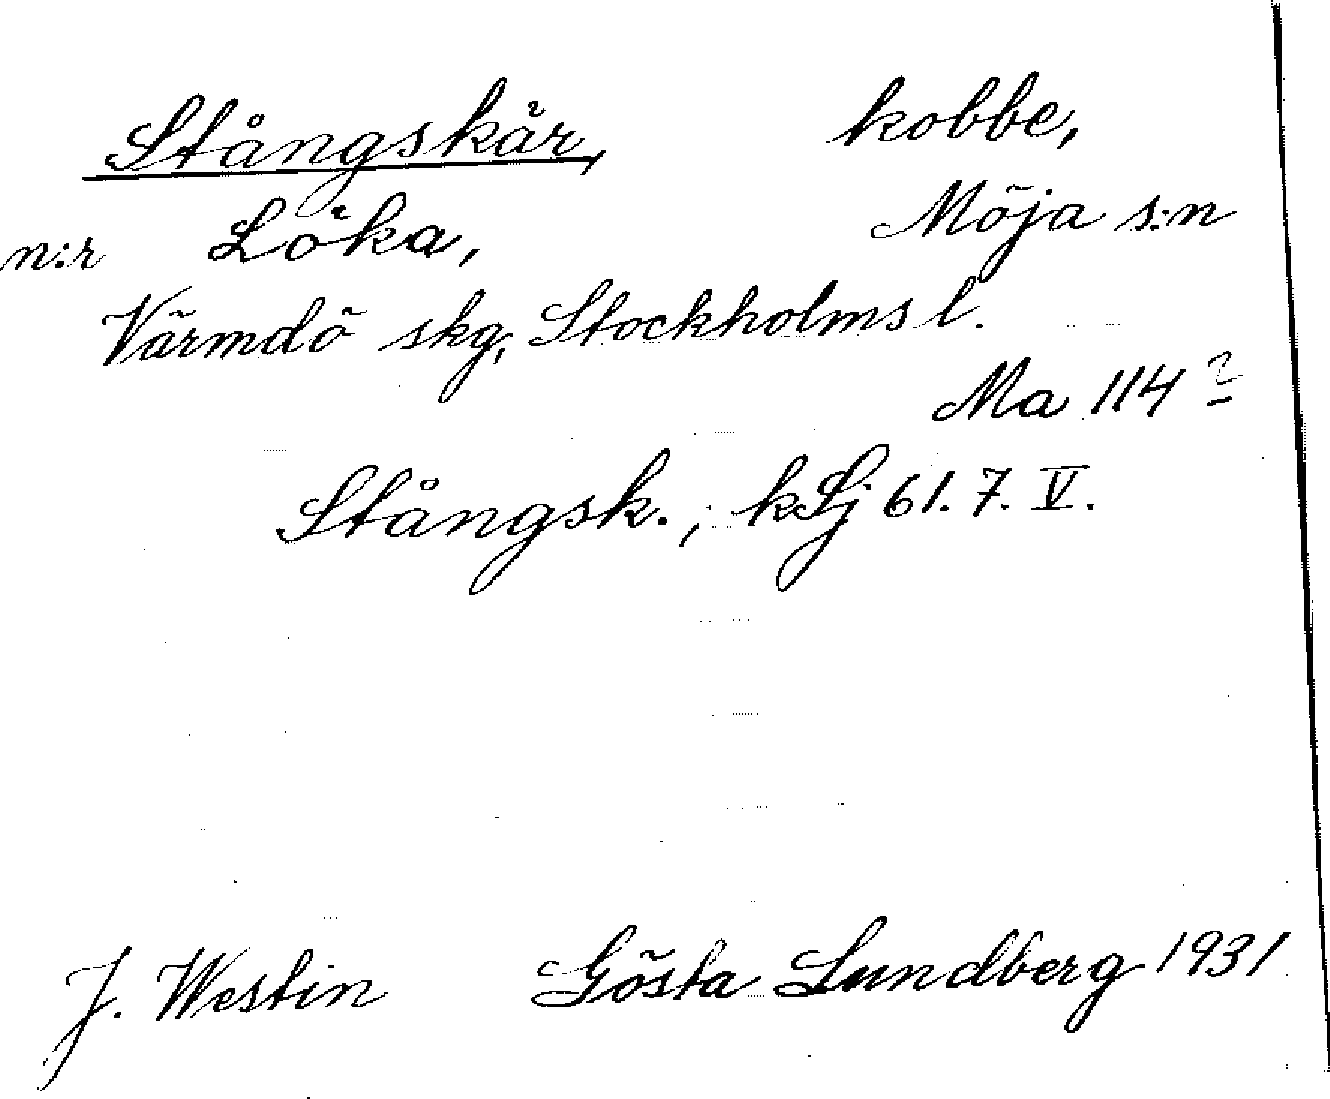 Stångskär, kobbe,
n:r Löka, Möja s:n
Värmdö skg, Stockholms l.
Ma 114 2
Stångsk., k Sj 61. 7. V.
J. Westin Gösta Lundberg 1931